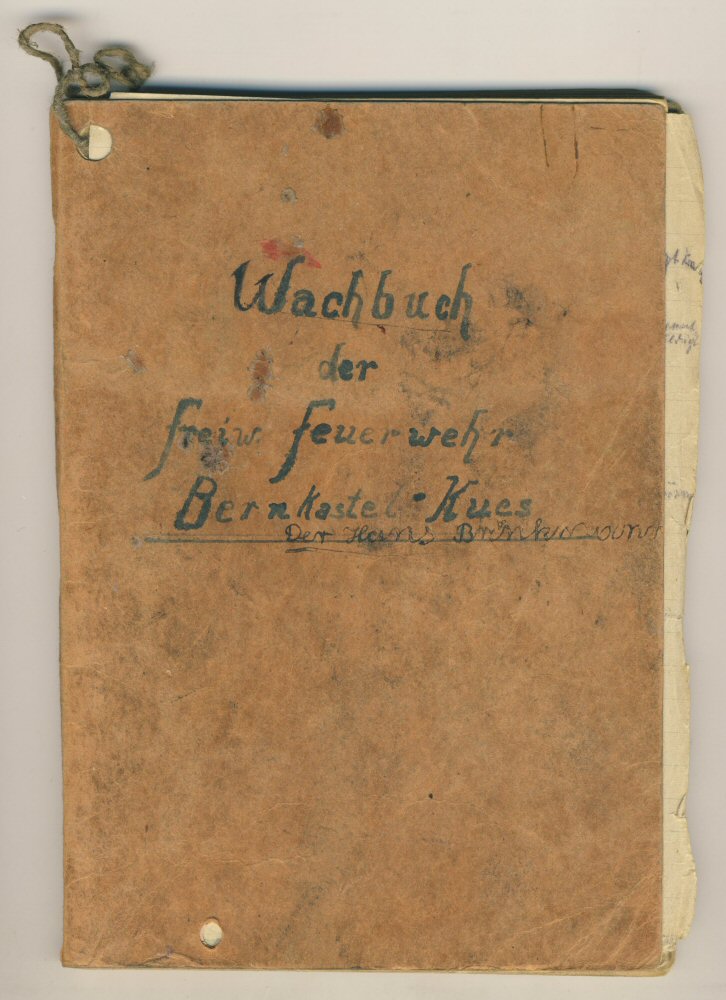 Wachbuch
der
freiw. Feuerwehr
Bernkastel-Kues
Der Hans Brinkmann